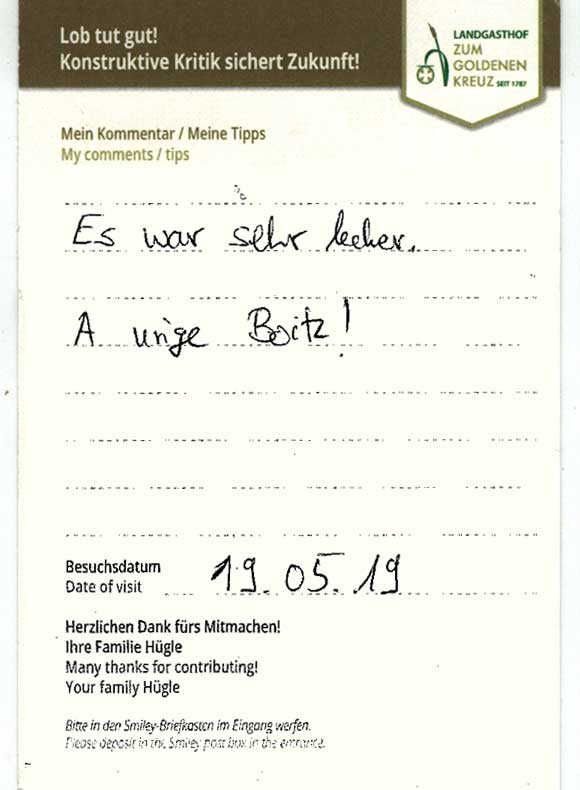 Lob tut gut!
Konstruktive Kritik sichert Zukunft!
LANDGASTHOF
ZUM
GOLDENEN
KREUZ SEIT 1787
Mein Kommentar / Meine Tipps
My comments / tips
Es war sehr lecker.
A urige Boitz!
Besuchsdatum
Date of visit 19.05.19
Herzlichen Dank fürs Mitmachen!
Ihre Familie Hügle
Many thanks for contributing!
Your family Hügle
Bitte in den Smiley-Briefkasten im Eingang werfen.
Please deposit in the Smiley post box in the entrance.